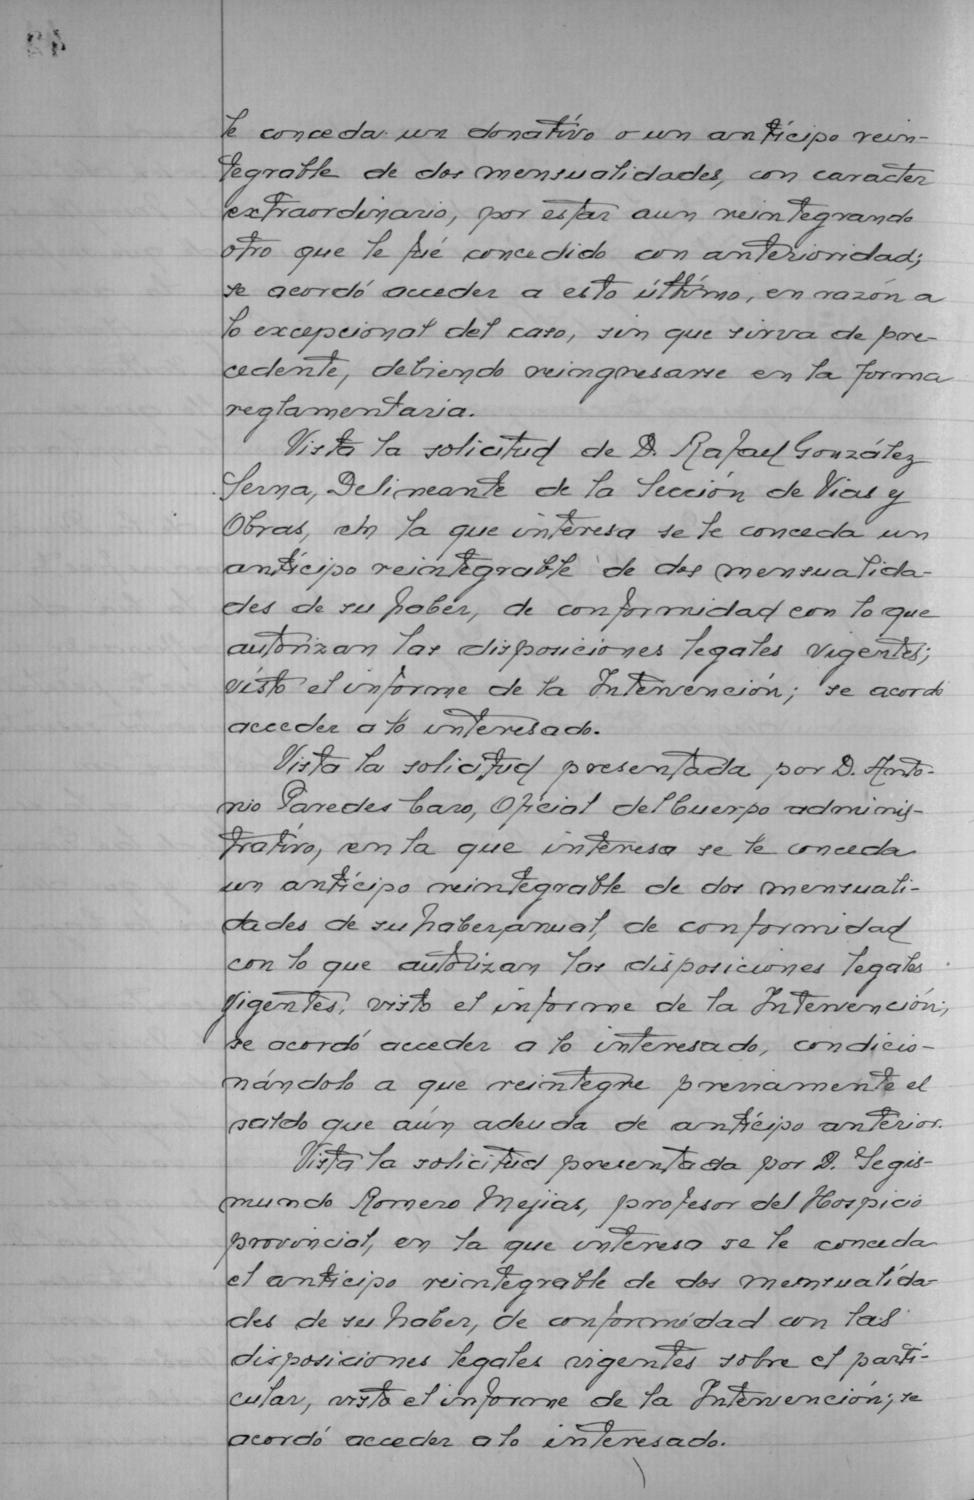 le conceda un donativo o un anticipo rein-
tegrable de dos mensualidades, con caracter
extraordinario, por estar aun reintegrando
otro que le fué concedido con anterioridad;
se acordó acceder a esto último, en razón a
lo excepcional del caso, sin que sirva de pre-
cedente, debiendo reingresarse en la forma
reglamentaria.
Vista la solicitud de D. Rafael González
Serna, Delineante de la Sección de Vias y
Obras, en la que interesa se le conceda un
anticipo reintegrable de dos mensualida-
des de su haber, de conformidad con lo que
autorizan las disposiciones legales vigentes;
visto el informe de la Intervención; se acordó
acceder a lo interesado.
Vista la solicitud presentada por D. Anto-
nio Paredes Caro, Oficial del Cuerpo adminis-
trativo, en la que interesa se le conceda
un anticipo reintegrable de dos mensuali-
dades de su haber anual, de conformidad
con lo que autorizan las disposiciones legales
vigentes; visto el informe de la Intervención;
se acordó acceder a lo interesado, condicio-
nándolo a que reintegre previamente el
saldo que aún adeuda de anticipo anterior.
Vista la solicitud presentada por D. Segis-
mundo Romero Mejias, profesor del Hospicio
provincial, en la que interesa se le conceda
el anticipo reintegrable de dos mensualida-
des de su haber, de conformidad con las
disposiciones legales vigentes sobre el parti-
cular, visto el informe de la Intervención; se
acordó acceder a lo interesado.